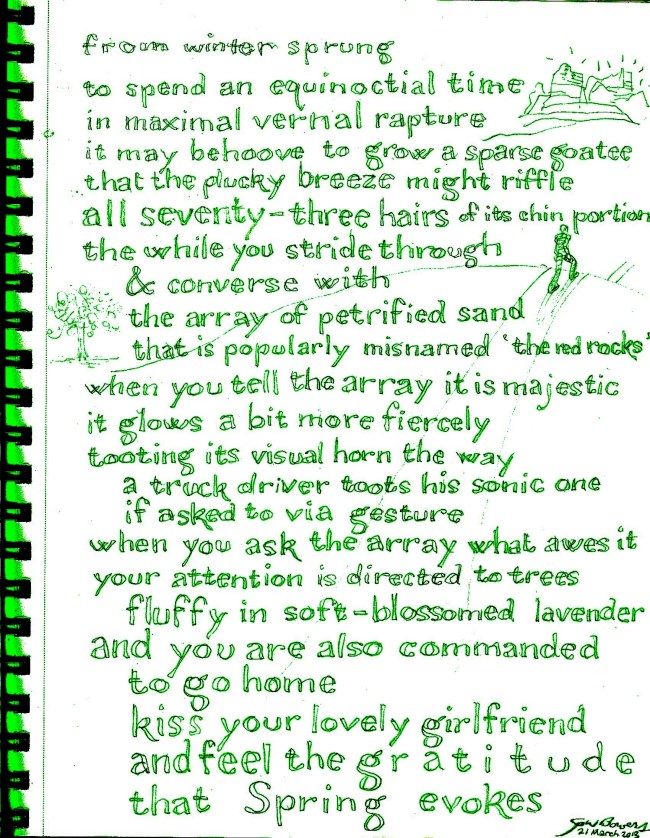 from winter sprung
to spend an equinoctial time
in maximal vernal rapture
it may behoove to grow a sparse goatee
that the plucky breeze might riffle
all seventy-three hairs of its chin portion
the while you stride through
& converse with
the array of petrified sand
that is popularly misnamed 'the red rocks'
when you tell the array it is majestic
it glows a bit more fiercely
tooting its visual horn the way
a truck driver toots his sonic one
if asked to via gesture
when you ask the array what awes it
your attention is directed to trees
fluffy in soft-blossomed lavender
and you are also commanded
to go home
kiss your lovely girlfriend
and feel the gratitude
that Spring evokes
21 March 2013